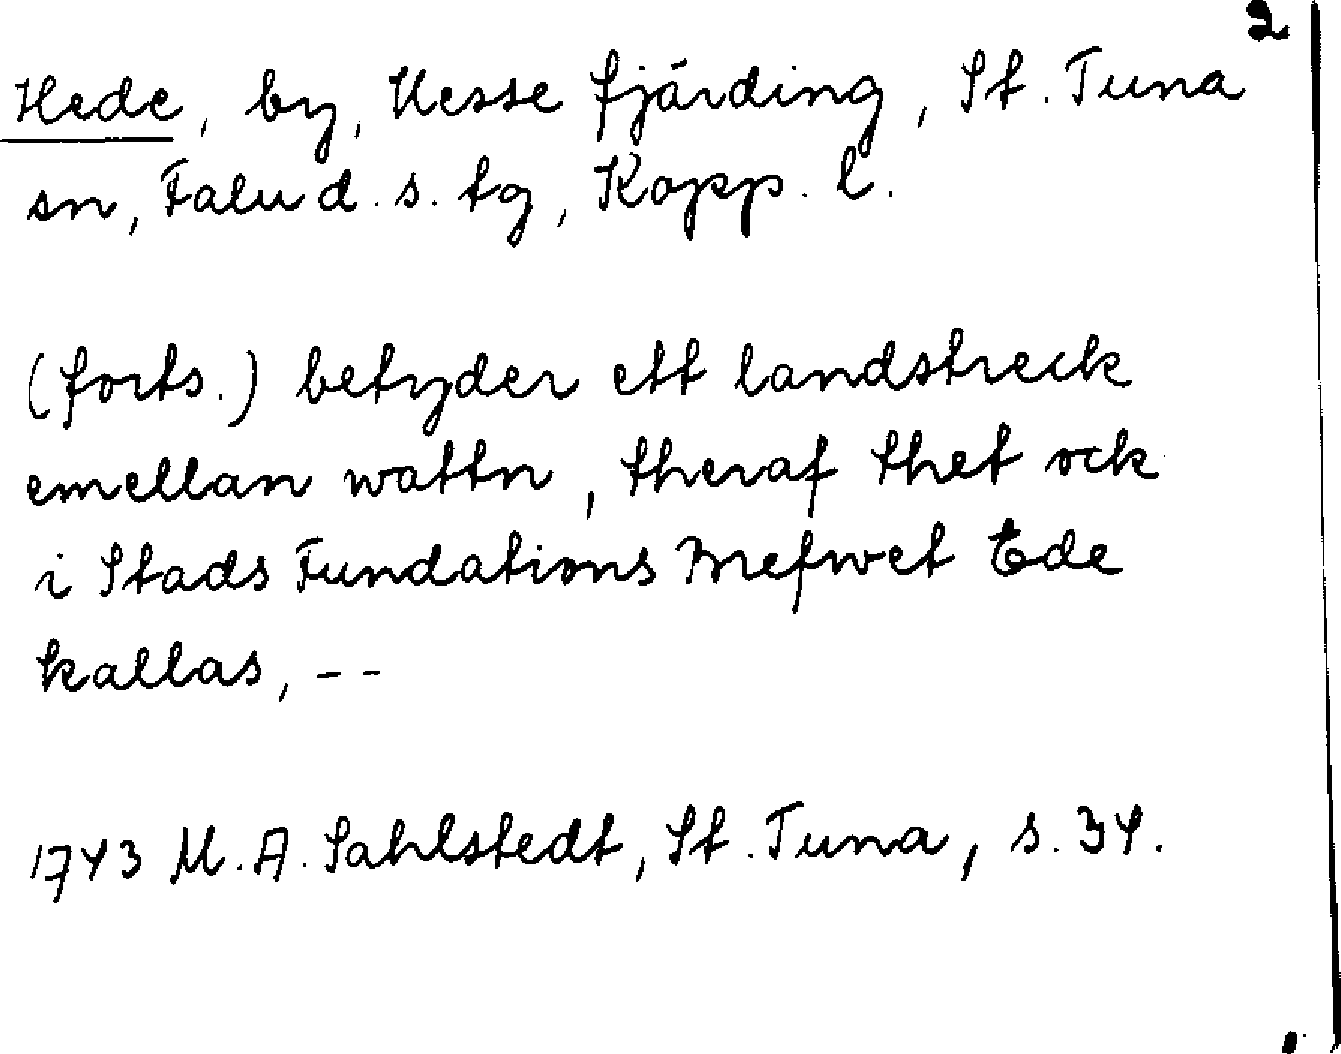 2
Hede, by, Uesse fjärding, St. Tuna
sn, Falu d. s. tg, Kopp. l.
(forts.) betyder ett landstreck
emellan wattn, theraf thet ock
i Stads Fundations Brefwet Ede
kallas, --
1743 M. A. Sahlstedt, St. Tuna, s. 34.